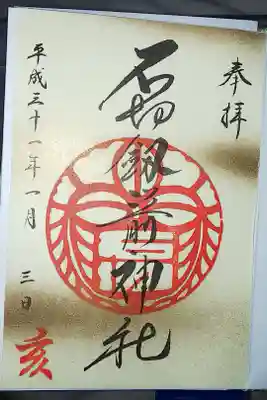 奉拝
石切劔箭神社
平成三十一年一月三日
亥